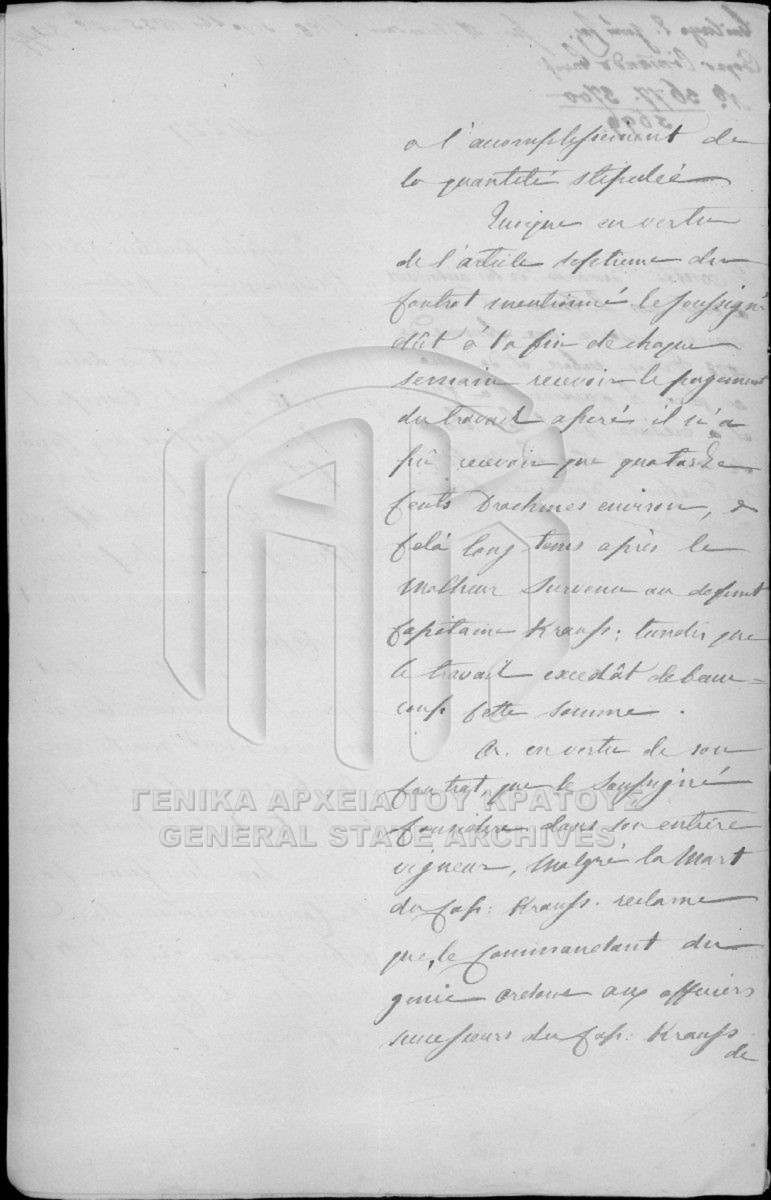 a l'acomplissement de
la quantité stipulée
Quoique en vertu
de l'article septieme du
Contrat mentionné le soussigné
dût á la fin de chaque
semain recevoir le payement
du travail aperés il n'a
pû recevoir que quatorze
Cents Drachmes environ, &
Celà long tems après le
Malheur survenu au defunt
Capitaine Krauss; tandis que
le travail excedât de beau=
coup Cette somme.
Or en vertu de son
Contrat, que le soussigné
Considère dans son entière
vigueur, malgré la Mort
du Cap: Krauss reclame
que le Commandant du
genie ordone aux officiers
successeurs du Cap: Krauss
de
ΓΕΝΙΚΑ ΑΡΧΕΙΑ ΤΟΥ ΚΡΑΤΟΥΣ
GENERAL STATE ARCHIVES